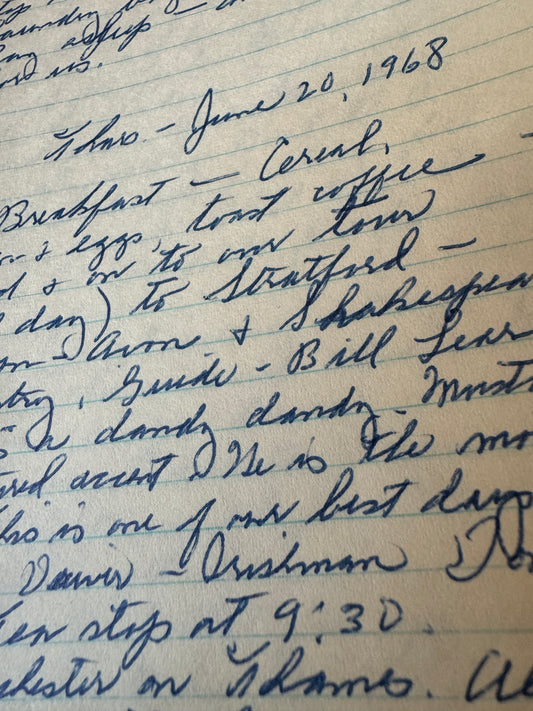 Thurs. - June 20, 1968
Breakfast - Cereal,
& eggs, toast coffee -
& on to our tour
day) to Stratford -
on Avon & Shakespea
try, Guide - Bill Lear
a dandy dandy. Most
accent. He is the mo
his is one of our best days
Driver - Irishman
Tea stop at 9:30.
chester on Thames. Al